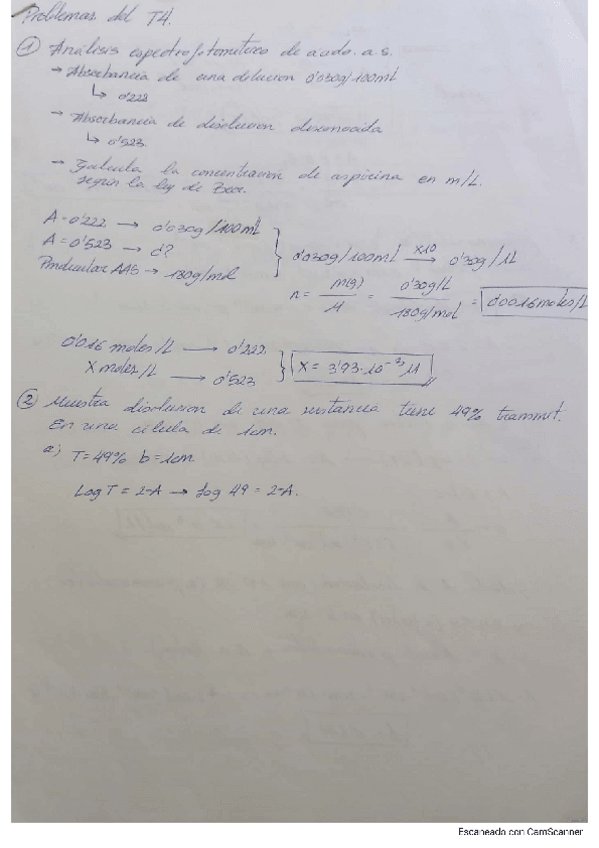 Problemas del T4.
① Análisis espectrofotométrico de ácido a.s.
→ Absorbancia de una dilución 0'030g/100ml
↳ 0'222
→ Absorbancia de disolución desconocida
↳ 0'523.
→ Calcula la concentración de aspirina en m/L.
según la ley de Beer.
A = 0'222 → 0'030g/100mL
A = 0'523 → c?
AAS → 180g/mol
0'030g/100ml x10→ 0'30g/1L
n = m(g)/M = 0'30g/L / 180g/mol = 0'0016moles/L
0'016 moles/L → 0'222
X moles/L → 0'523
X = 3'93·10⁻³M
② Muestra disolución de una sustancia tiene 49% transmit.
En una célula de 1cm.
a) T=49% b=1cm
Log T = 2-A → log 49 = 2-A.
Escaneado con CamScanner